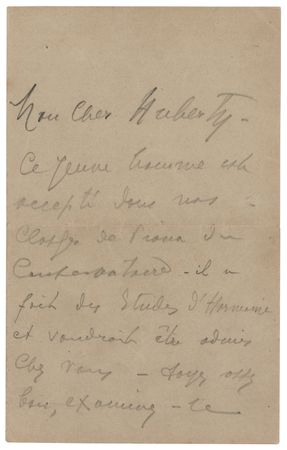 Mon cher Huberty -
Ce jeune homme est
accepté dans nos
Classes de Piano du
Conservatoire - il a
fait des Etudes d'Harmonie
et voudrait être admis
chez vous - Soyez assez
bon, examinez-le